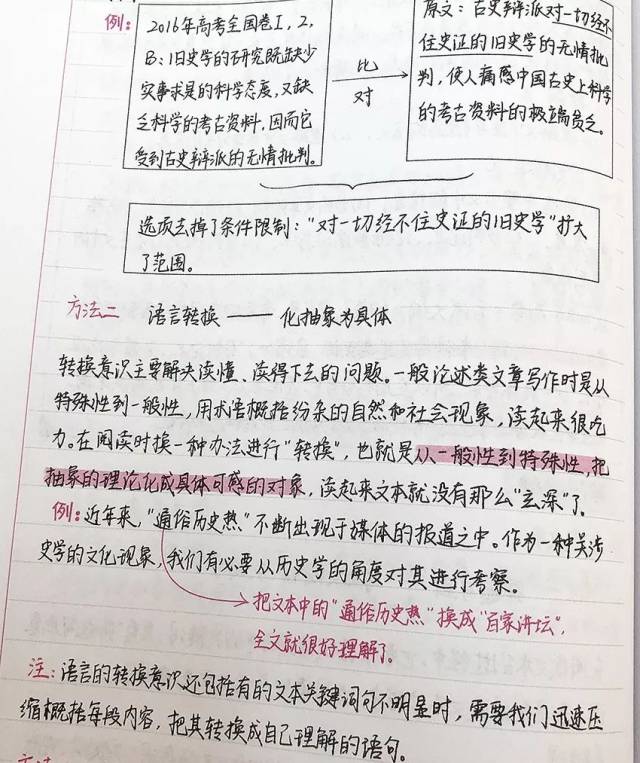 例:
2016年高考全国卷Ⅰ, 2,
B: 旧史学的研究既缺少
实事求是的科学态度, 又缺
乏科学的考古资料, 因而它
受到古史辩派的无情批判。
比
对
原文: 古史辩派对一切经不
住史证的旧史学的无情批
判, 使人痛感中国古史上科学
的考古资料的极端贫乏。
选项去掉了条件限制: “对一切经不住史证的旧史学”扩大
了范围。
方法二 语言转换 —— 化抽象为具体
转换意识主要解决读懂、读得下去的问题。一般论述类文章写作时是从
特殊性到一般性, 用术语概括纷杂的自然和社会现象, 读起来很吃
力。在阅读时换一种办法进行“转换”, 也就是从一般性到特殊性, 把
抽象的理论化成具体可感的对象, 读起来文本就没有那么“玄深”了。
例: 近年来, “通俗历史热”不断出现于媒体的报道之中。作为一种关涉
史学的文化现象, 我们有必要从历史学的角度对其进行考察。
把文本中的“通俗历史热”换成“百家讲坛”,
全文就很好理解了。
注: 语言的转换意识还包括有的文本关键词句不明显时, 需要我们迅速压
缩概括每段内容, 把其转换成自己理解的语句。